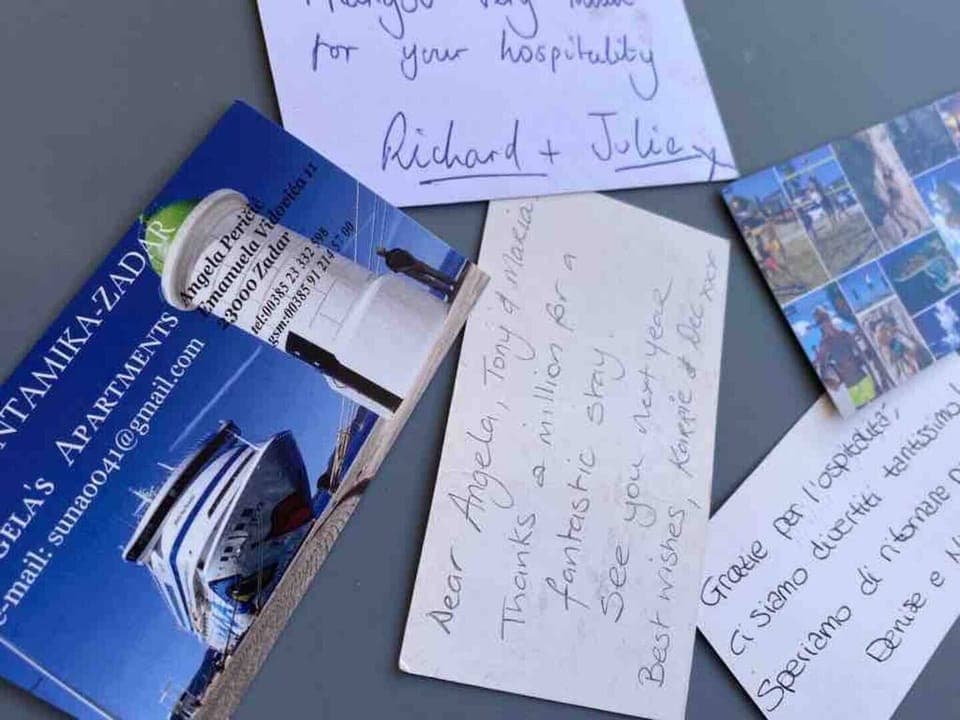 Thankyou very much
for your hospitality
Richard + Julie x
NTAMIKA-ZADAR
GELA'S APARTMENTS
e-mail: suna0041@gmail.com
Angela Peričić
Emanuela Vidovića 11
23000 Zadar
tel:00385 23 332 598
gsm:00385 91 214 87 00
Dear Angela, Tony & Maria
Thanks a million for a
fantastic stay.
See you next year
Best wishes, & Dec xxx
Grazie per l'ospitalità,
Ci siamo divertiti tantissimo!
Speriamo di ritornare
Denise e